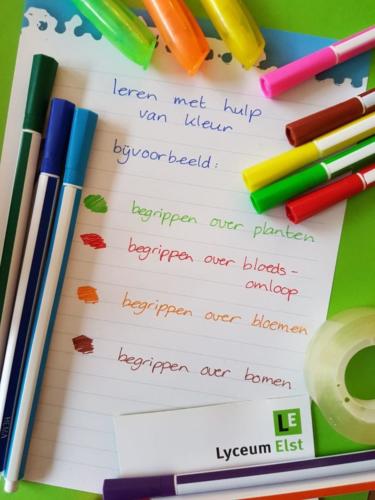 leren met hulp
van kleur
bijvoorbeeld:
begrippen over planten
begrippen over bloeds-
omloop
begrippen over bloemen
begrippen over bomen
LE
Lyceum Elst
HEMA